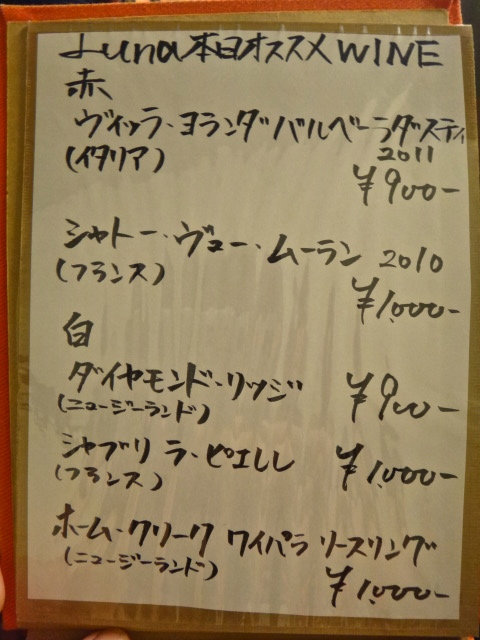 Luna本日オススメWINE
赤
ヴィッラ・ヨランダバルベーラダスティ
(イタリア)
2011
¥900-
シャトー・ヴュー・ムーラン 2010
(フランス)
¥1,000-
白
ダイヤモンド・リッジ ¥900-
(ニュージーランド)
シャブリ ラ・ピエレレ ¥1,000-
(フランス)
ホーム・クリーク ワイパラ リースリング
(ニュージーランド)
¥1,000-